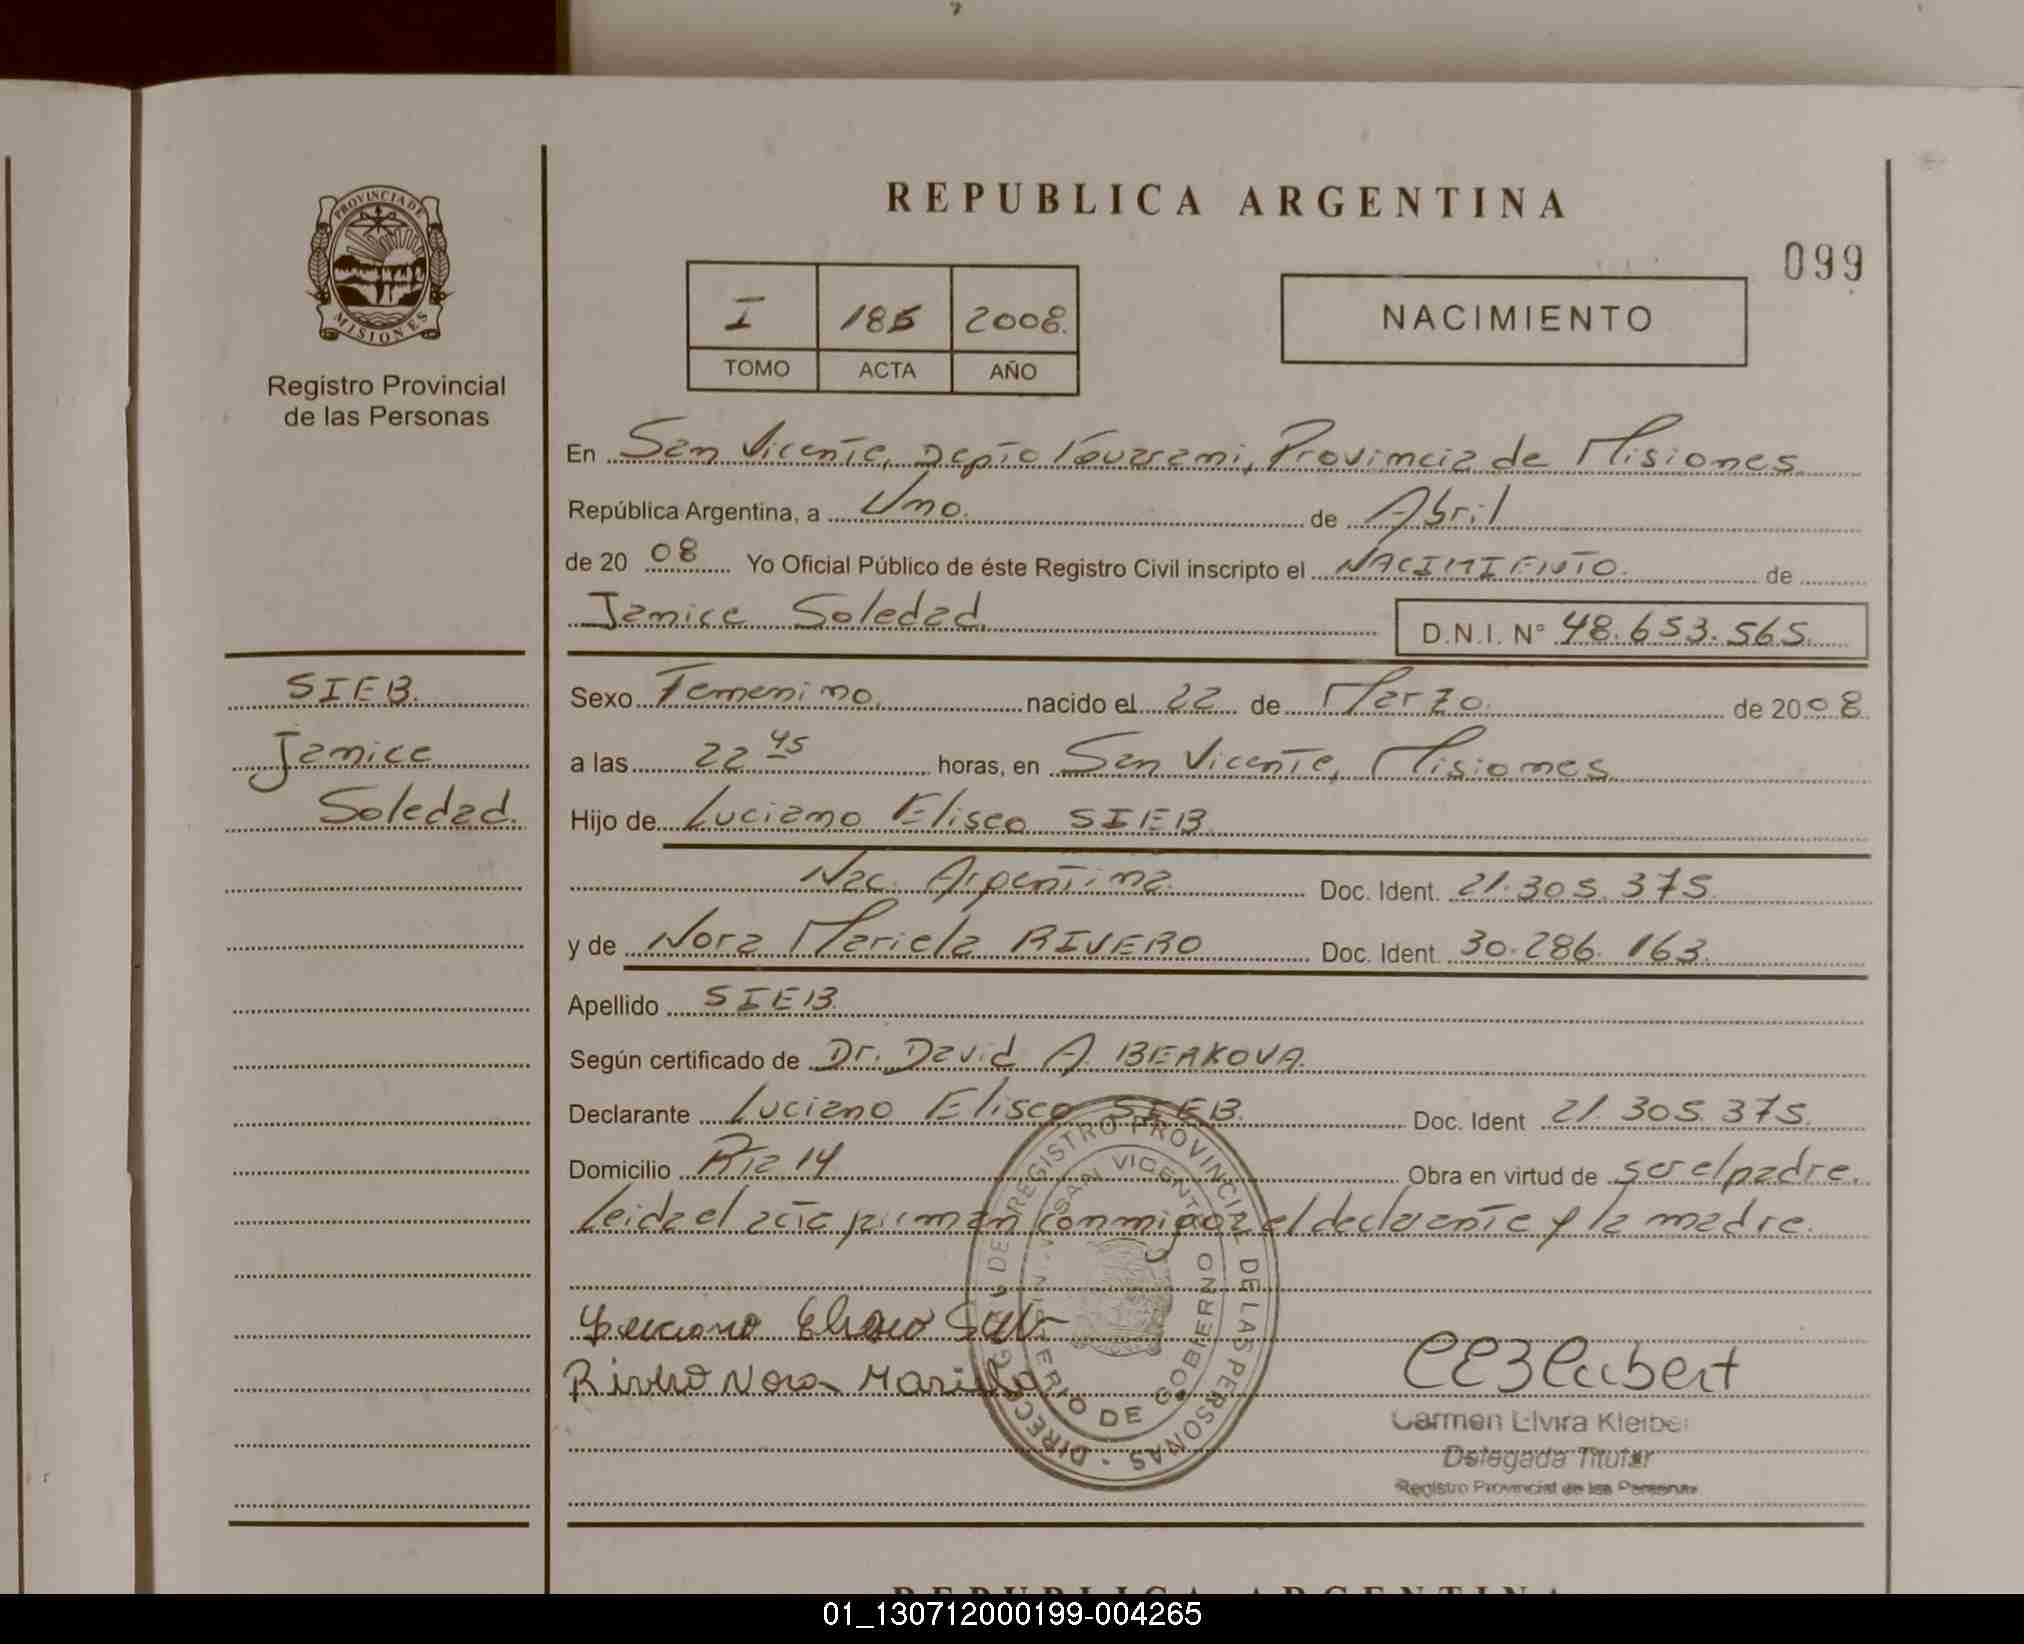 REPUBLICA ARGENTINA
099
PROVINCIA DE
MISIONES
Registro Provincial
de las Personas
I 2008.
TOMO ACTA AÑO
NACIMIENTO
En San Vicente, Depto Guarani, Provincia de Misiones
República Argentina, a Uno. de Abril
de 20 08 Yo Oficial Público de éste Registro Civil inscripto el NACIMIENTO. de
Janice Soledad. D.N.I. N° 48.653.565.
SIEB.
Janice
Soledad.
Sexo Femenino. nacido el 22 de Marzo. de 2008.
a las 22 45 horas, en San Vicente, Misiones.
Hijo de Luciano Eliseo SIEB.
Nac. Argentina. Doc. Ident. 21.305.375.
y de Nora Mariela RIVERO Doc. Ident. 30.286.163.
Apellido SIEB.
Según certificado de Dr. David A. BERKOVA.
Declarante Luciano Eliseo SIEB. Doc. Ident 21.305.375.
Domicilio Rta 14 Obra en virtud de ser el padre.
Leida el acta firman conmigo el declarante y la madre.
Luciano Eliseo Sieb
Rivero Nora Mariela
DIRECC. G. DE REGISTRO PROVINCIAL DE LAS PERSONAS
SAN VICENTE
DE GOBIERNO
Carmen Elvira Kleiber
Delegada Titular
Registro Provincial de las Personas
REPUBLICA ARGENTINA
01_130712000199-004265